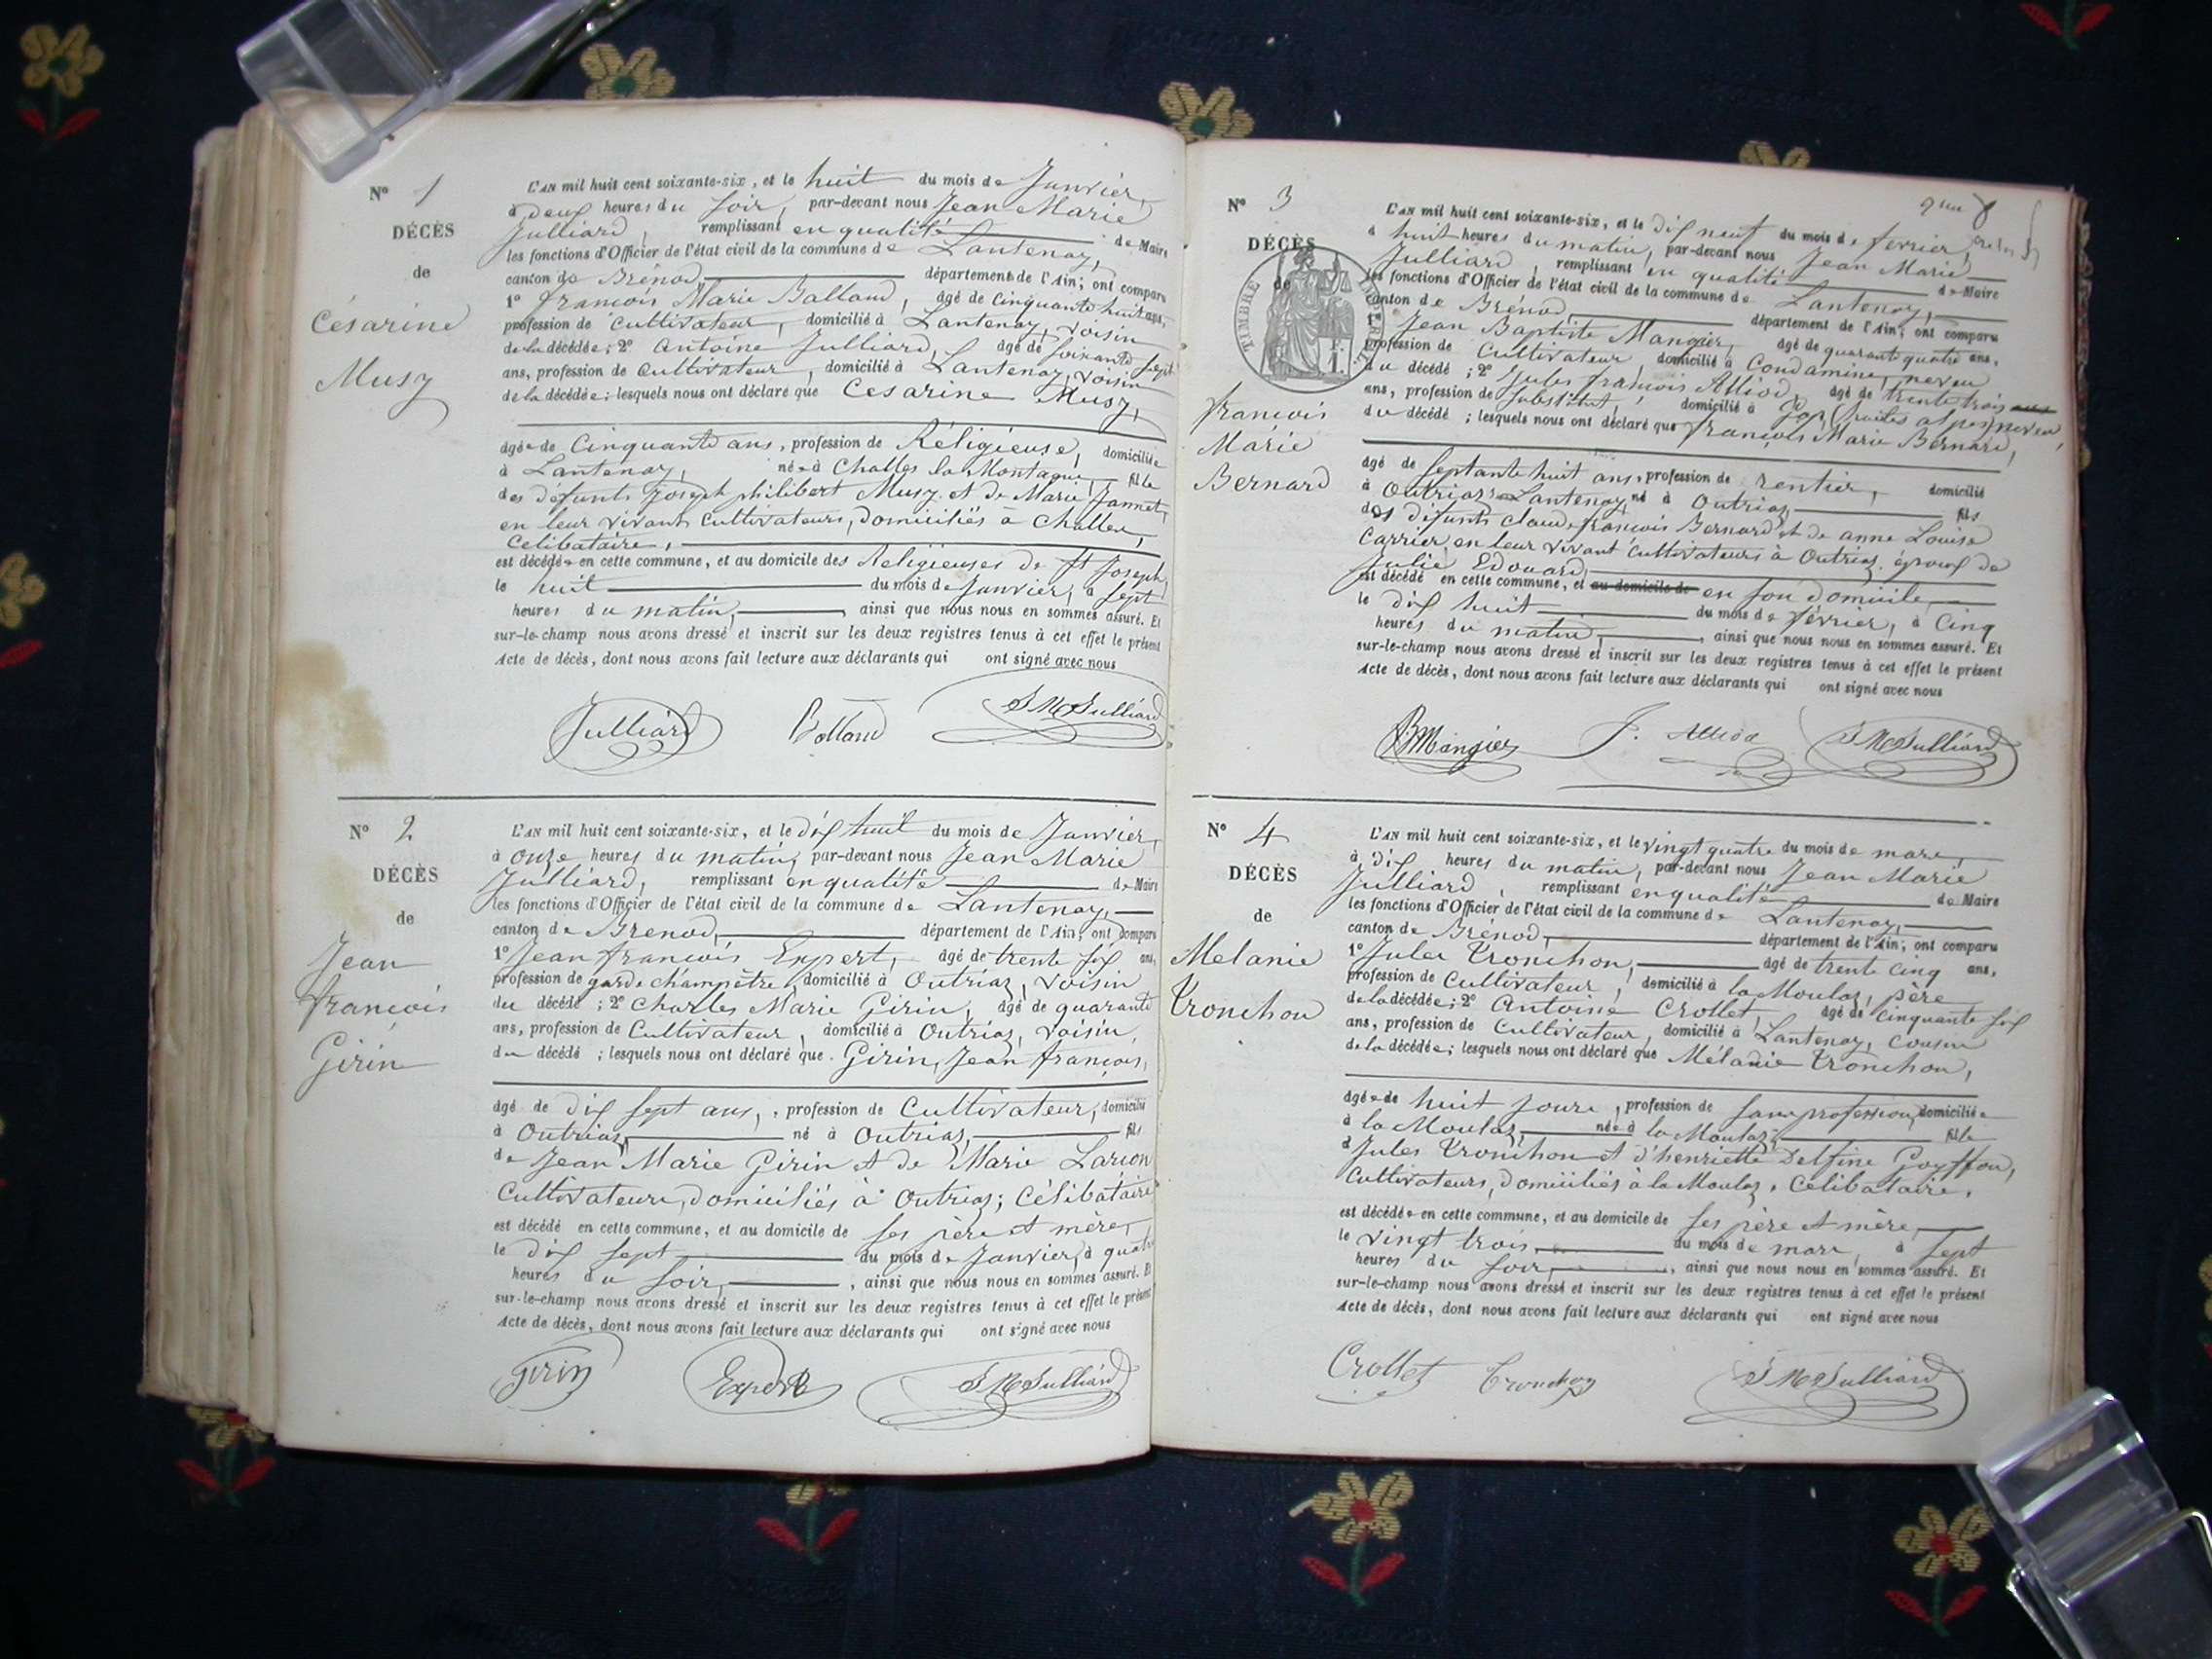 N° 1
DÉCÈS
de
Césarine
Musy
L'AN mil huit cent soixante-six, et le huit du mois de Janvier,
à deux heures du soir, par-devant nous Jean Marie
Julliard, remplissant en qualité de Maire
les fonctions d'Officier de l'état civil de la commune de Lantenay,
canton de Brénod, département de l'Ain; ont comparu
1° françois Marie Balland, âgé de cinquante huit ans,
profession de cultivateur, domicilié à Lantenay, voisin
de la décédée; 2° Antoine Julliard, âgé de soixante sept
ans, profession de cultivateur, domicilié à Lantenay, voisin
de la décédée; lesquels nous ont déclaré que Césarine Musy,
âgée de Cinquante ans, profession de Réligieuse, domiciliée
à Lantenay, née à Challes la Montagne, fille
des défunts Joseph philibert Musy et de Marie Jannet,
en leur vivant cultivateurs, domiciliés à Challes,
Celibataire,
est décédée en cette commune, et au domicile des Religieuses de St Joseph,
le huit du mois de Janvier, à sept
heures du matin, ainsi que nous nous en sommes assuré. Et
sur-le-champ nous avons dressé et inscrit sur les deux registres tenus à cet effet le présent
Acte de décès, dont nous avons fait lecture aux déclarants qui ont signé avec nous
Julliard Balland J M Julliard
N° 2
DÉCÈS
de
Jean
françois
Girin
L'AN mil huit cent soixante-six, et le dix huit du mois de Janvier,
à onze heures du matin, par-devant nous Jean Marie
Julliard, remplissant en qualité de Maire
les fonctions d'Officier de l'état civil de la commune de Lantenay,
canton de Brenod, département de l'Ain; ont comparu
1° Jean françois Expert, âgé de trente six ans,
profession de garde champêtre, domicilié à Outriaz, voisin
du décédé; 2° Charles Marie Girin, âgé de quarante
ans, profession de Cultivateur, domicilié à Outriaz, voisin,
du décédé; lesquels nous ont déclaré que Girin, Jean françois,
âgé de dix sept ans, profession de Cultivateur, domicilié
à Outriaz, né à Outriaz, fils
de Jean Marie Girin et de Marie Larion
Cultivateurs, domiciliés à Outriaz; Célibataire
est décédé en cette commune, et au domicile de ses père et mère,
le dix sept du mois de Janvier, à quatre
heures du soir, ainsi que nous nous en sommes assuré. Et
sur-le-champ nous avons dressé et inscrit sur les deux registres tenus à cet effet le présent
Acte de décès, dont nous avons fait lecture aux déclarants qui ont signé avec nous
Girin Expert J M Julliard
N° 3
DÉCÈS
de
TIMBRE IMPERIAL
françois
Marie
Bernard
L'AN mil huit cent soixante-six, et le dix neuf du mois de fevrier,
à huit heures du matin, par-devant nous Jean Marie
Julliard, remplissant en qualité de Maire
les fonctions d'Officier de l'état civil de la commune de Lantenay,
canton de Brénod, département de l'Ain; ont comparu
1° Jean Baptiste Mangier, âgé de quarante quatre ans,
profession de Cultivateur, domicilié à Condamine, neveu
du décédé; 2° Jules françois Alliod, âgé de trente trois ans
ans, profession de Substitut, domicilié à Gap (hautes alpes) neveu
du décédé; lesquels nous ont déclaré que françois Marie Bernard,
âgé de septante huit ans, profession de rentier, domicilié
à Outriaz Lantenay, né à Outriaz fils
des défunts claude françois Bernard et de anne Louise
Carrier, en leur vivant cultivateurs à Outriaz, époux de
Julie Edouard,
est décédé en cette commune, et au domicile de en son domicile,
le dix huit du mois de février, à cinq
heures du matin, ainsi que nous nous en sommes assuré. Et
sur-le-champ nous avons dressé et inscrit sur les deux registres tenus à cet effet le présent
Acte de décès, dont nous avons fait lecture aux déclarants qui ont signé avec nous
JBMangier J. Alliod J M Julliard
N° 4
DÉCÈS
de
Melanie
Tronchon
L'AN mil huit cent soixante-six, et le vingt quatre du mois de mars,
à dix heures du matin, par-devant nous Jean Marie
Julliard, remplissant en qualité de Maire
les fonctions d'Officier de l'état civil de la commune de Lantenay,
canton de Brénod, département de l'Ain; ont comparu
1° Jules Tronchon, âgé de trente cinq ans,
profession de Cultivateur, domicilié à la Moulaz, père
de la décédée; 2° Antoine Crollet, âgé de cinquante six
ans, profession de cultivateur, domicilié à Lantenay, cousin
de la décédée; lesquels nous ont déclaré que Mélanie Tronchon,
âgée de huit jours, profession de sans profession, domiciliée
à la Moulaz, née à la Moulaz, fille
d Jules Tronchon et d'henriette Delfine Goyffon,
Cultivateurs, domiciliés à la Moulaz, Celibataire,
est décédée en cette commune, et au domicile de ses père et mère,
le vingt trois, du mois de mars, à sept
heures du soir, ainsi que nous nous en sommes assuré. Et
sur-le-champ nous avons dressé et inscrit sur les deux registres tenus à cet effet le présent
Acte de décès, dont nous avons fait lecture aux déclarants qui ont signé avec nous
Crollet Tronchon J M Julliard